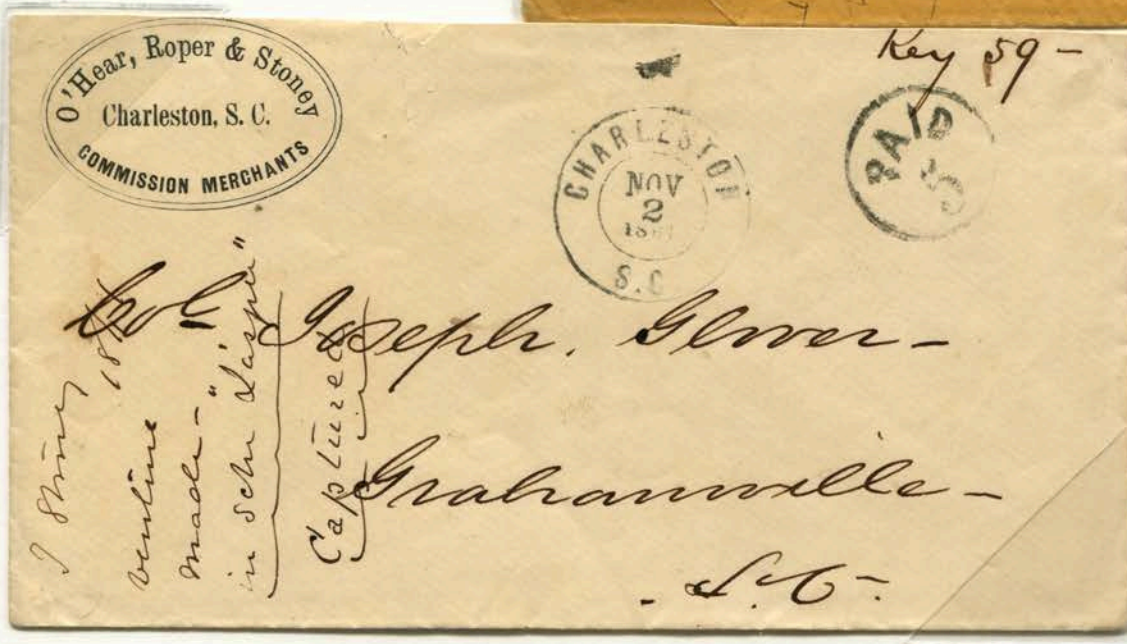 O'Hear, Roper & Stoney
Charleston, S. C.
COMMISSION MERCHANTS
Key 59 -
CHARLESTON
NOV
2
S.C.
PAID
5
Col Joseph. Glover -
Grahamville -
S. C -
venture
made -
in schr "
Captured